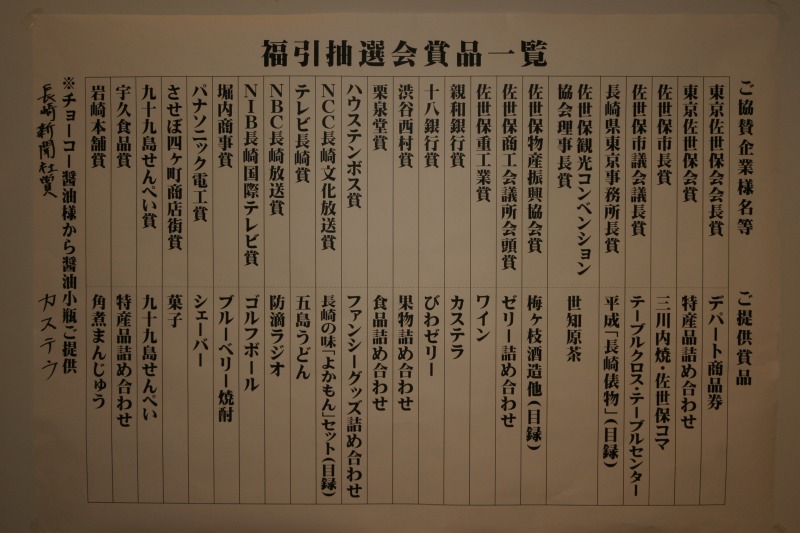 福引抽選会賞品一覧
ご協賛企業様名等 ご提供賞品
東京佐世保会会長賞 デパート商品券
東京佐世保会賞 特産品詰め合わせ
佐世保市長賞 三川内焼・佐世保コマ
佐世保市議会議長賞 テーブルクロス・テーブルセンター
長崎県東京事務所長賞 平成「長崎俵物」(目録)
佐世保観光コンベンション
協会理事長賞 世知原茶
佐世保物産振興協会賞 梅ヶ枝酒造他(目録)
佐世保商工会議所会頭賞 ゼリー詰め合わせ
佐世保重工業賞 ワイン
親和銀行賞 カステラ
十八銀行賞 びわゼリー
渋谷西村賞 果物詰め合わせ
栗泉堂賞 食品詰め合わせ
ハウステンボス賞 ファンシーグッズ詰め合わせ
NCC長崎文化放送賞 長崎の味「よかもん」セット(目録)
テレビ長崎賞 五島うどん
NBC長崎放送賞 防滴ラジオ
NIB長崎国際テレビ賞 ゴルフボール
堀内商事賞 ブルーベリー焼酎
パナソニック電工賞 シェーバー
させぼ四ヶ町商店街賞 菓子
九十九島せんぺい賞 九十九島せんぺい
宇久食品賞 特産品詰め合わせ
岩崎本舗賞 角煮まんじゅう
※チョーコー醤油様から醤油小瓶ご提供
長崎新聞社賞 カステラ